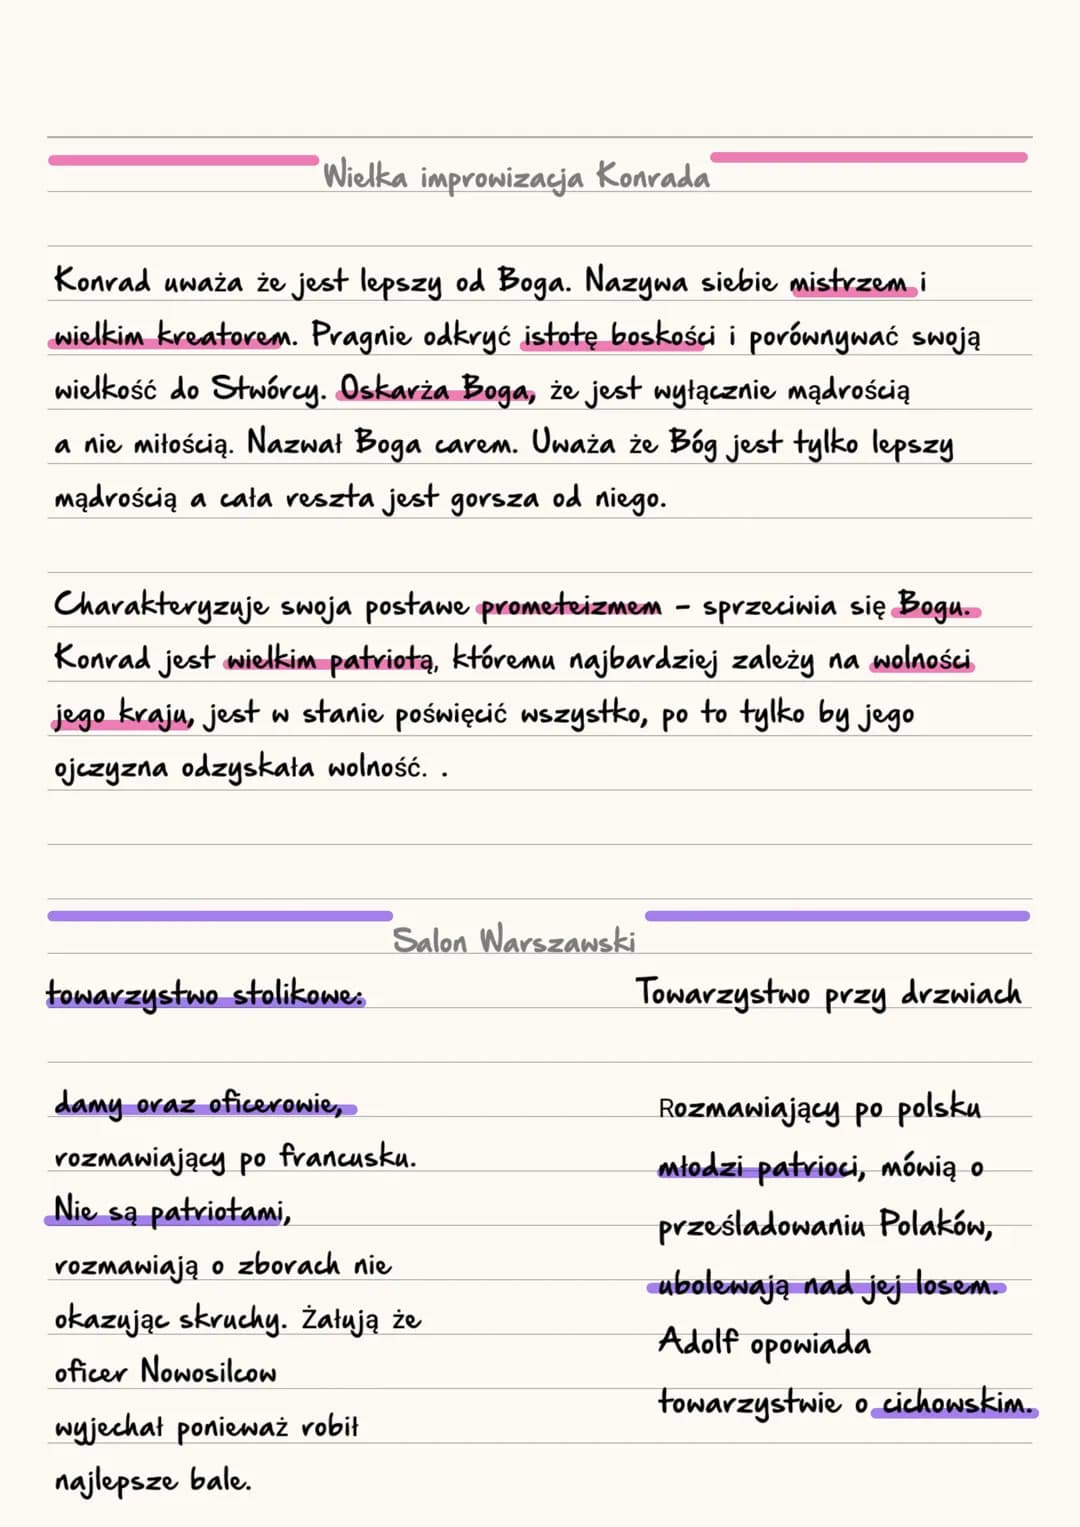 Wielka improwizacja Konrada
Konrad uważa że jest lepszy od Boga. Nazywa siebie mistrzem i
wielkim kreatorem. Pragnie odkryć istotę boskości i porównywać swoją
wielkość do Stwórcy. Oskarża Boga, że jest wyłącznie mądrością
a nie miłością. Nazwał Boga carem. Uważa że Bóg jest tylko lepszy
mądrością a cała reszta jest gorsza od niego.
Charakteryzuje swoja postawe prometeizmem - sprzeciwia się Bogu.
Konrad jest wielkim patriotą, któremu najbardziej zależy na wolności
jego kraju, jest w stanie poświęcić wszystko, po to tylko by jego
ojczyzna odzyskała wolność. .
Salon Warszawski
towarzystwo stolikowe:
damy oraz oficerowie,
rozmawiający po francusku.
Nie są patriotami,
rozmawiają o zborach nie
okazując skruchy. Żałują że
oficer Nowosilcow
wyjechał ponieważ robił
najlepsze bale.
Towarzystwo przy drzwiach
Rozmawiający po polsku
młodzi patrioci, mówią o
prześladowaniu Polaków,
ubolewają nad jej losem.
Adolf opowiada
towarzystwie o cichowskim.